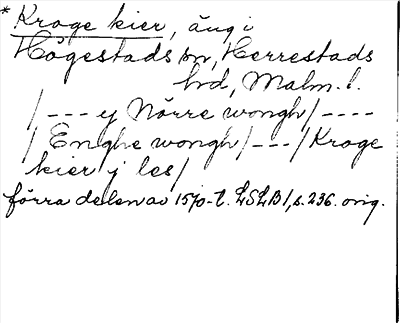 * Kroge kier, äng i
Högestads sn, Herrestads
hd, Malm. l.
/ - - - ej Nörre wongh / - - - -
/ Enghe wongh / - - - / Kroge
kier j les /
förra delen av 1570-t. LSLB 1, s. 236. orig.